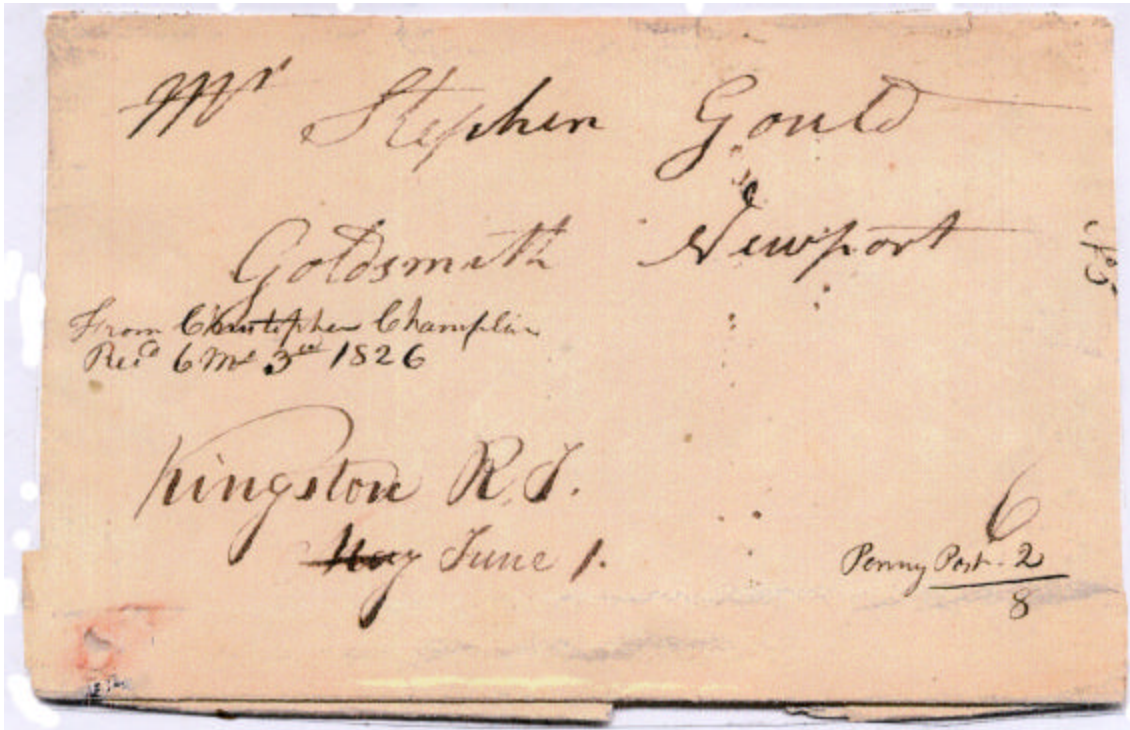 Mr Stephen Gould
Goldsmith Newport
From Christopher Champlin
Recd 6 Mo 3rd 1826
Kingston R.I.
May June 1.
6
Penny Post - 2
8